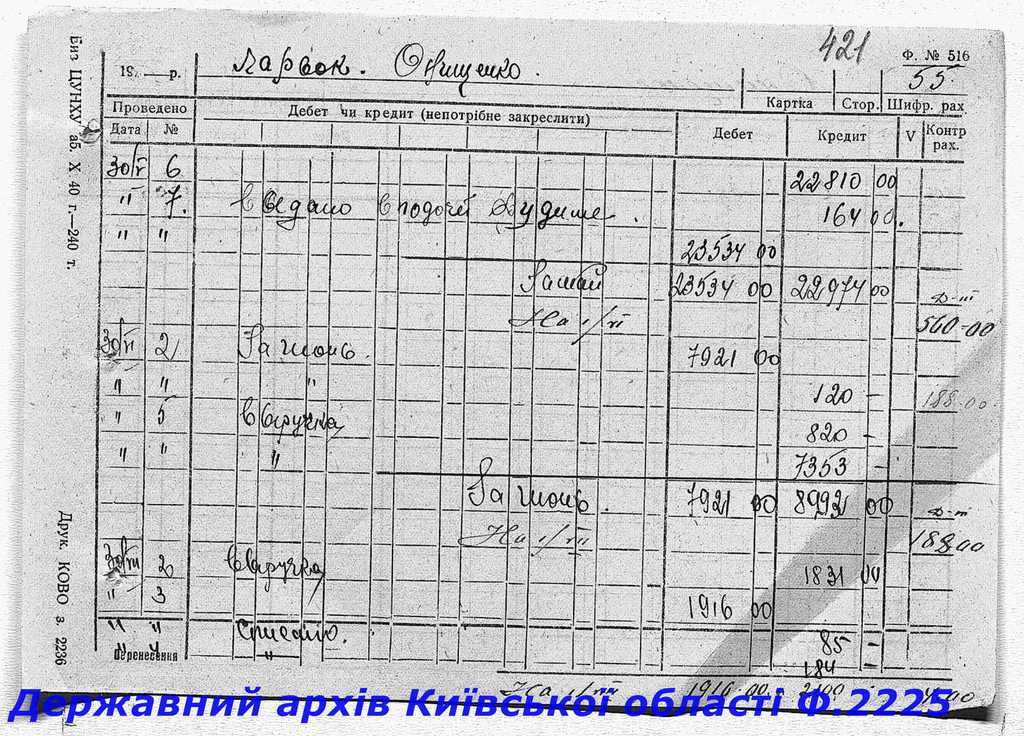 421
Ф. № 516
19 — р. Ларьок. Онищенко. 55
Картка Стор. Шифр. рах
Проведено Дебет чи кредит (непотрібне закреслити) Дебет Кредит V Контр рах.
Дата №
30/V 6 22810 00
" 7. 164 00.
" " 23534 00
За май 23534 00 22974 00 Д-т
На 1/VI 560-00
30/VI 2 За июнь. 7921 00
" " " 120 — 188-00
" 5 Выручка 820 —
" " " 7353 —
За июнь. 7921 00 00 Д-т
На 1/VII 188 00
30/VII 2 Выручка 1831 00
" 3 1916 00
" " 85 —
Перенесення " 184 —
На 1/VIII 1916 00. 2100
Биз ЦУНХУ аб. X 40 г.—240 т.
Друк. КОВО З. 2236
Державний архів Київської області Ф.2225